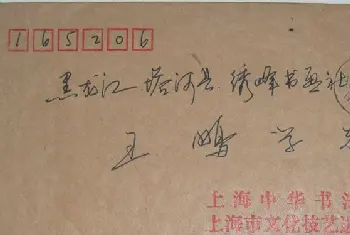 165206
黑龙江塔河县绣峰书画社
王鹏学
上海中华书法
上海市文化技艺进